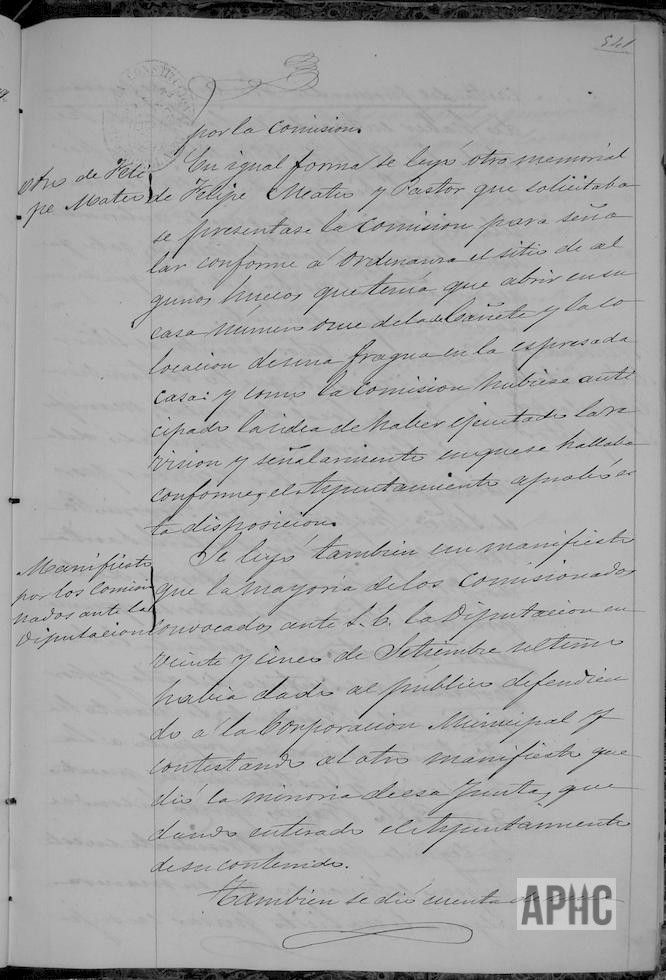 541
por la comision.
En igual forma se leyó otro memorial
Otro de Feli
pe Mateo
de Felipe Mateo y Pastor que solicitaba
se presentase la Comision para seña
lar conforme á Ordenanza el sitio de al
gunos huecos que tenia que abrir en su
casa número once de la de Cañete y la co
locacion de una fragua en la espresada
casa: y como la Comision hubiese anti
cipado la idea de haber ejecutado la re
vision y señalamiento en que se hallaba
conforme, el Ayuntamiento aprobó es
ta disposicion.
Manifiesto
por los Comisio
nados ante la
Diputacion
Se leyó tambien un manifiesto
que la mayoria de los Comisionados
convocados ante S. E. la Diputacion en
veinte y cinco de Setiembre ultimo
habia dado al público defendien
do á la Corporacion Municipal y
contestando al otro manifiesto que
dió la minoria de esa Junta, que
dando enterado el Ayuntamiento
de su contenido.
Tambien se dió cuenta de
APHC